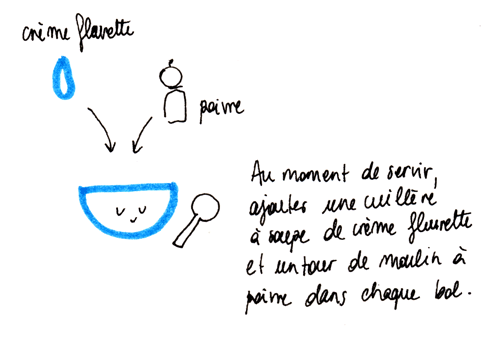 crème fleurette
poivre
Au moment de servir,
ajoutez une cuillère
à soupe de crème fleurette
et un tour de moulin à
poivre dans chaque bol.